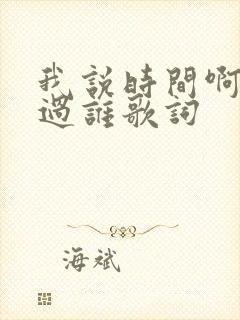 我說時間啊
過誰歌詞
海斌